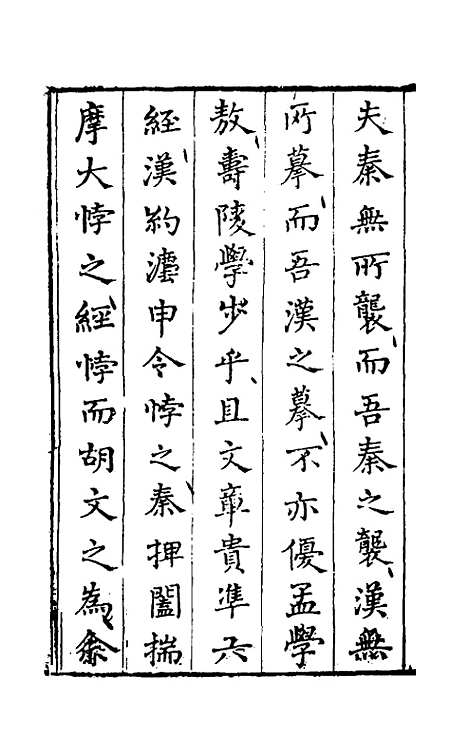 夫秦無所襲而吾秦之襲漢無
所摹而吾漢之摹不亦優孟學
敖壽陵學步乎且文章貴準六
經漢約灋申令悖之秦捭闔揣
摩大悖之經悖而胡文之為余